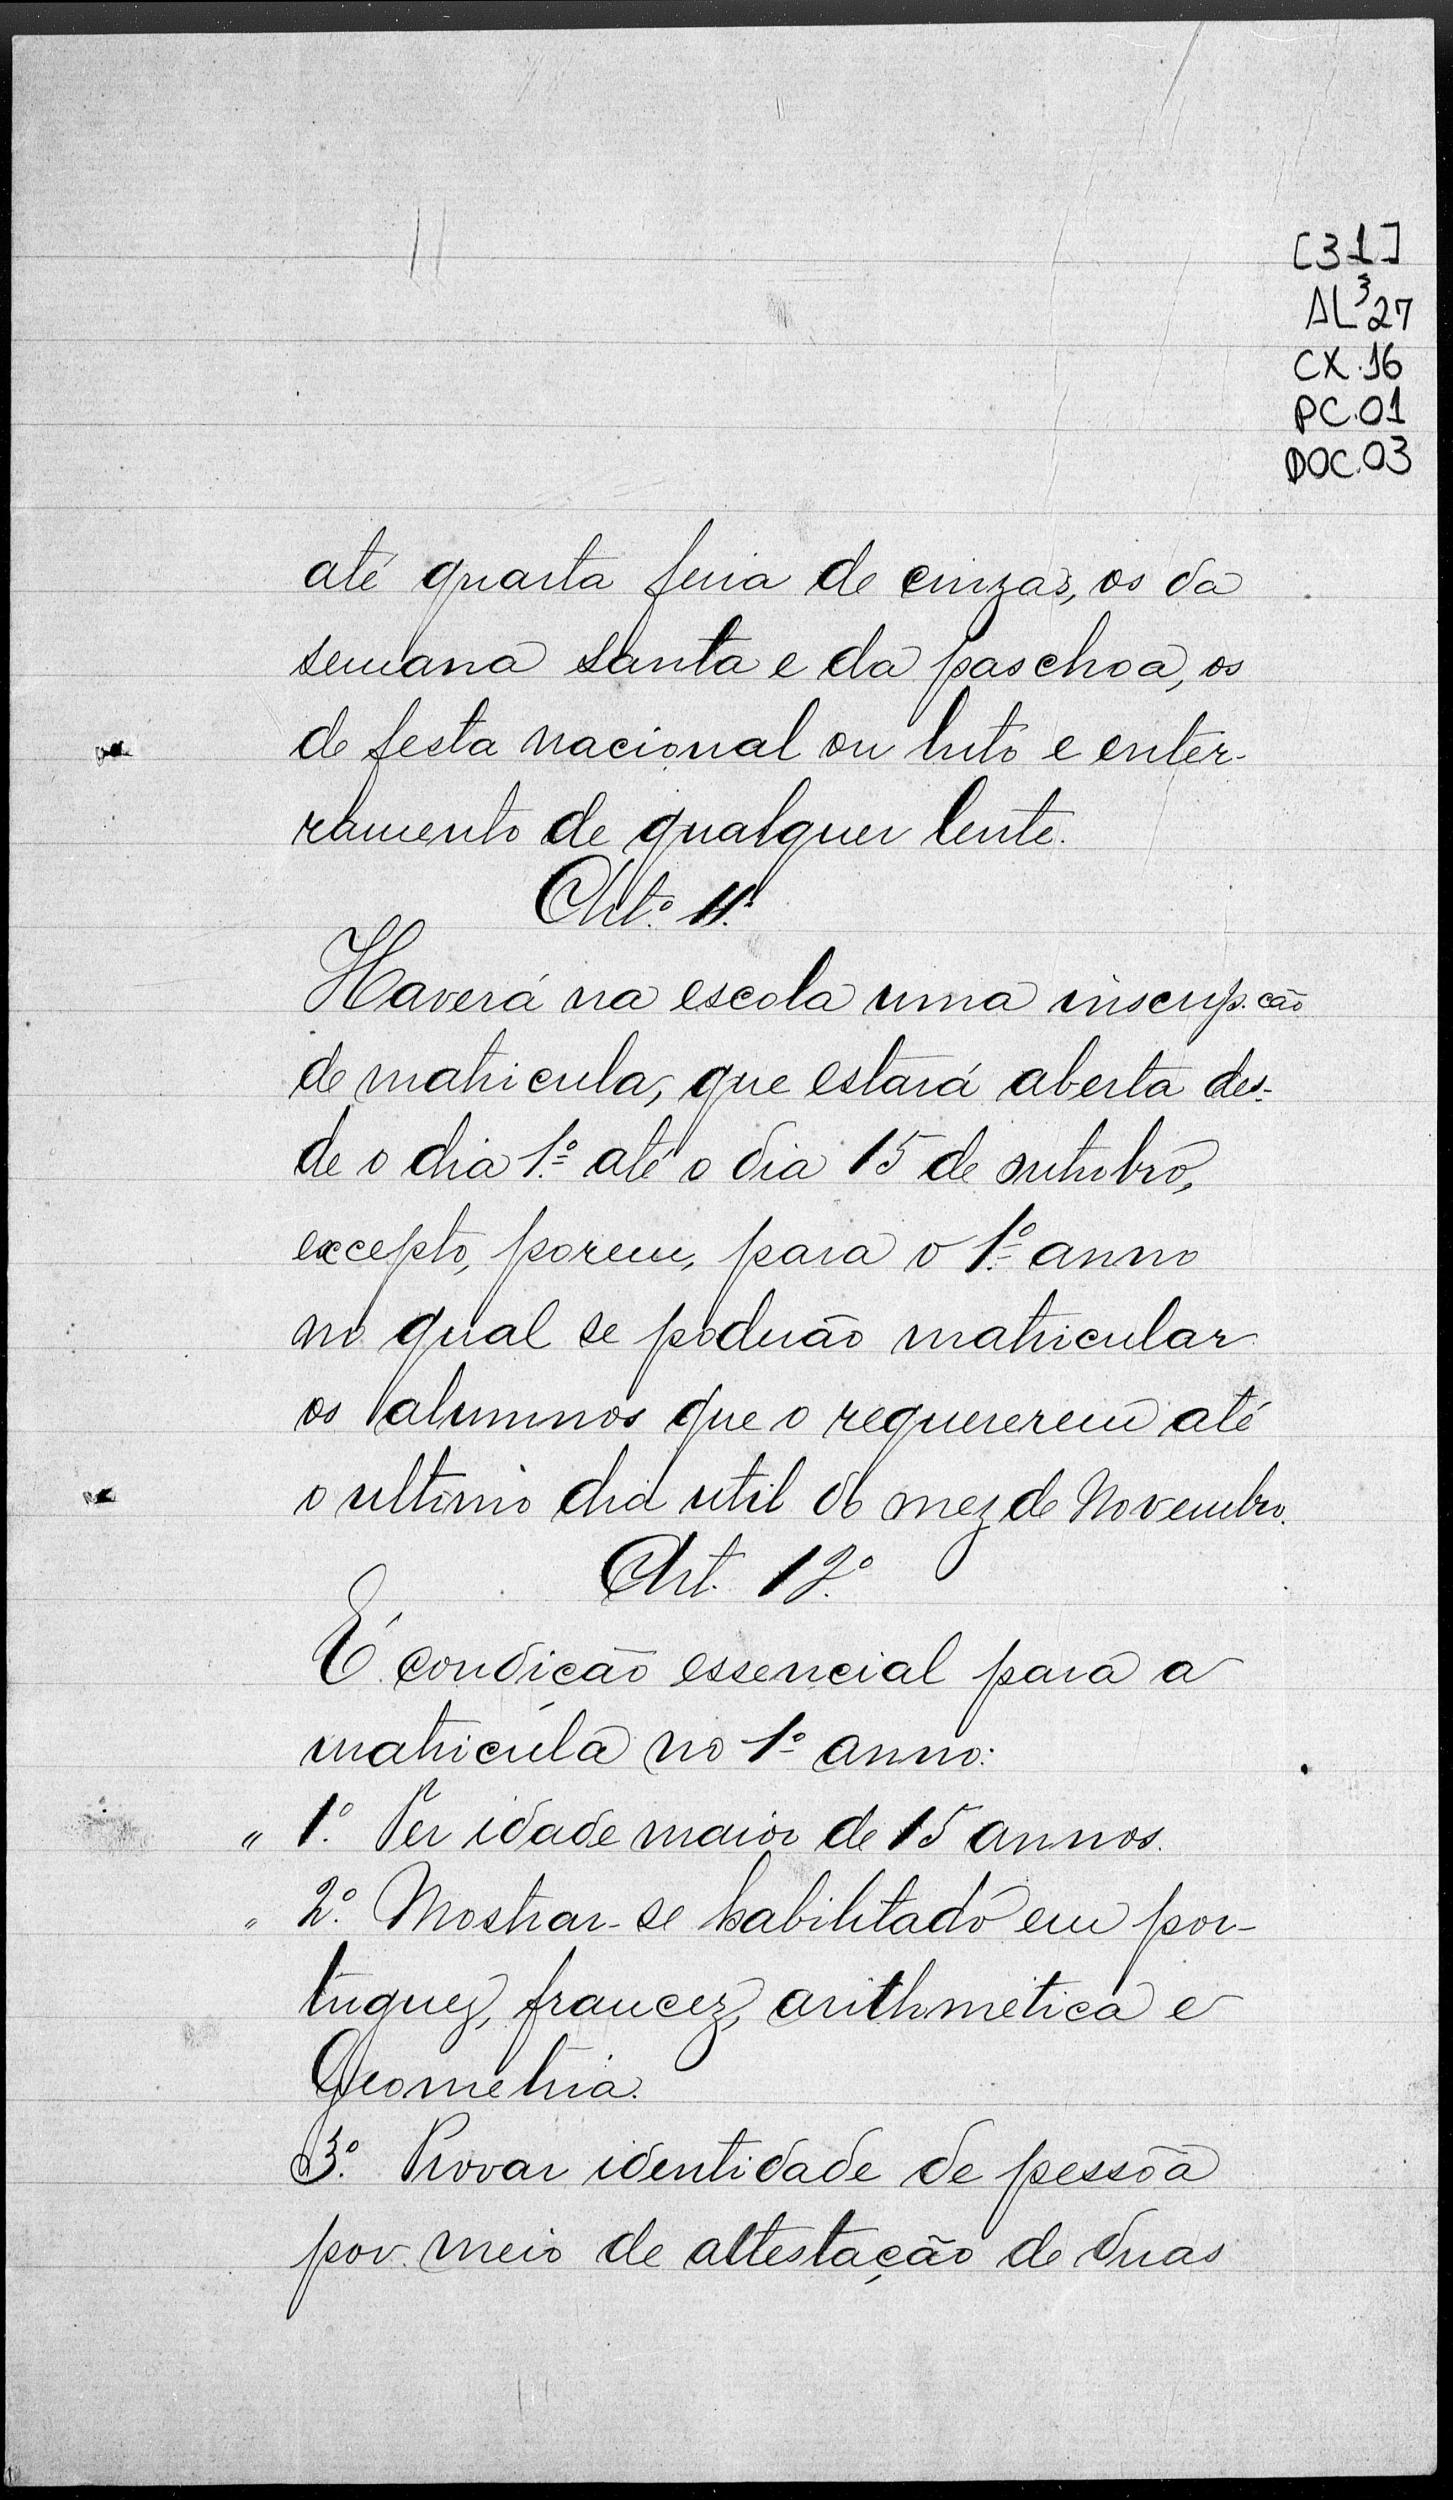 [31]
AL³27
CX.16
PC.01
DOC.03
até quarta feira de cinzas, os da
semana santa e da paschoa, os
de festa nacional ou luto e enter-
ramento de qualquer lente.
Art.º 11.º
Haverá na escola uma inscripção
de matricula, que estará aberta des-
de o dia 1.º até o dia 15 de outubro,
excepto, porem, para o 1.º anno
no qual se poderão matricular
os alumnos que o requererem até
o ultimo dia util do mez de Novembro.
Art. 12.º
É condição essencial para a
matricula no 1.º anno:
" 1.º Ter idade maior de 15 annos.
" 2.º Mostrar-se habilitado em por-
tuguez, francez, arithmetica e
Geometria.
3.º Provar identidade de pessôa
por meio de attestação de duas